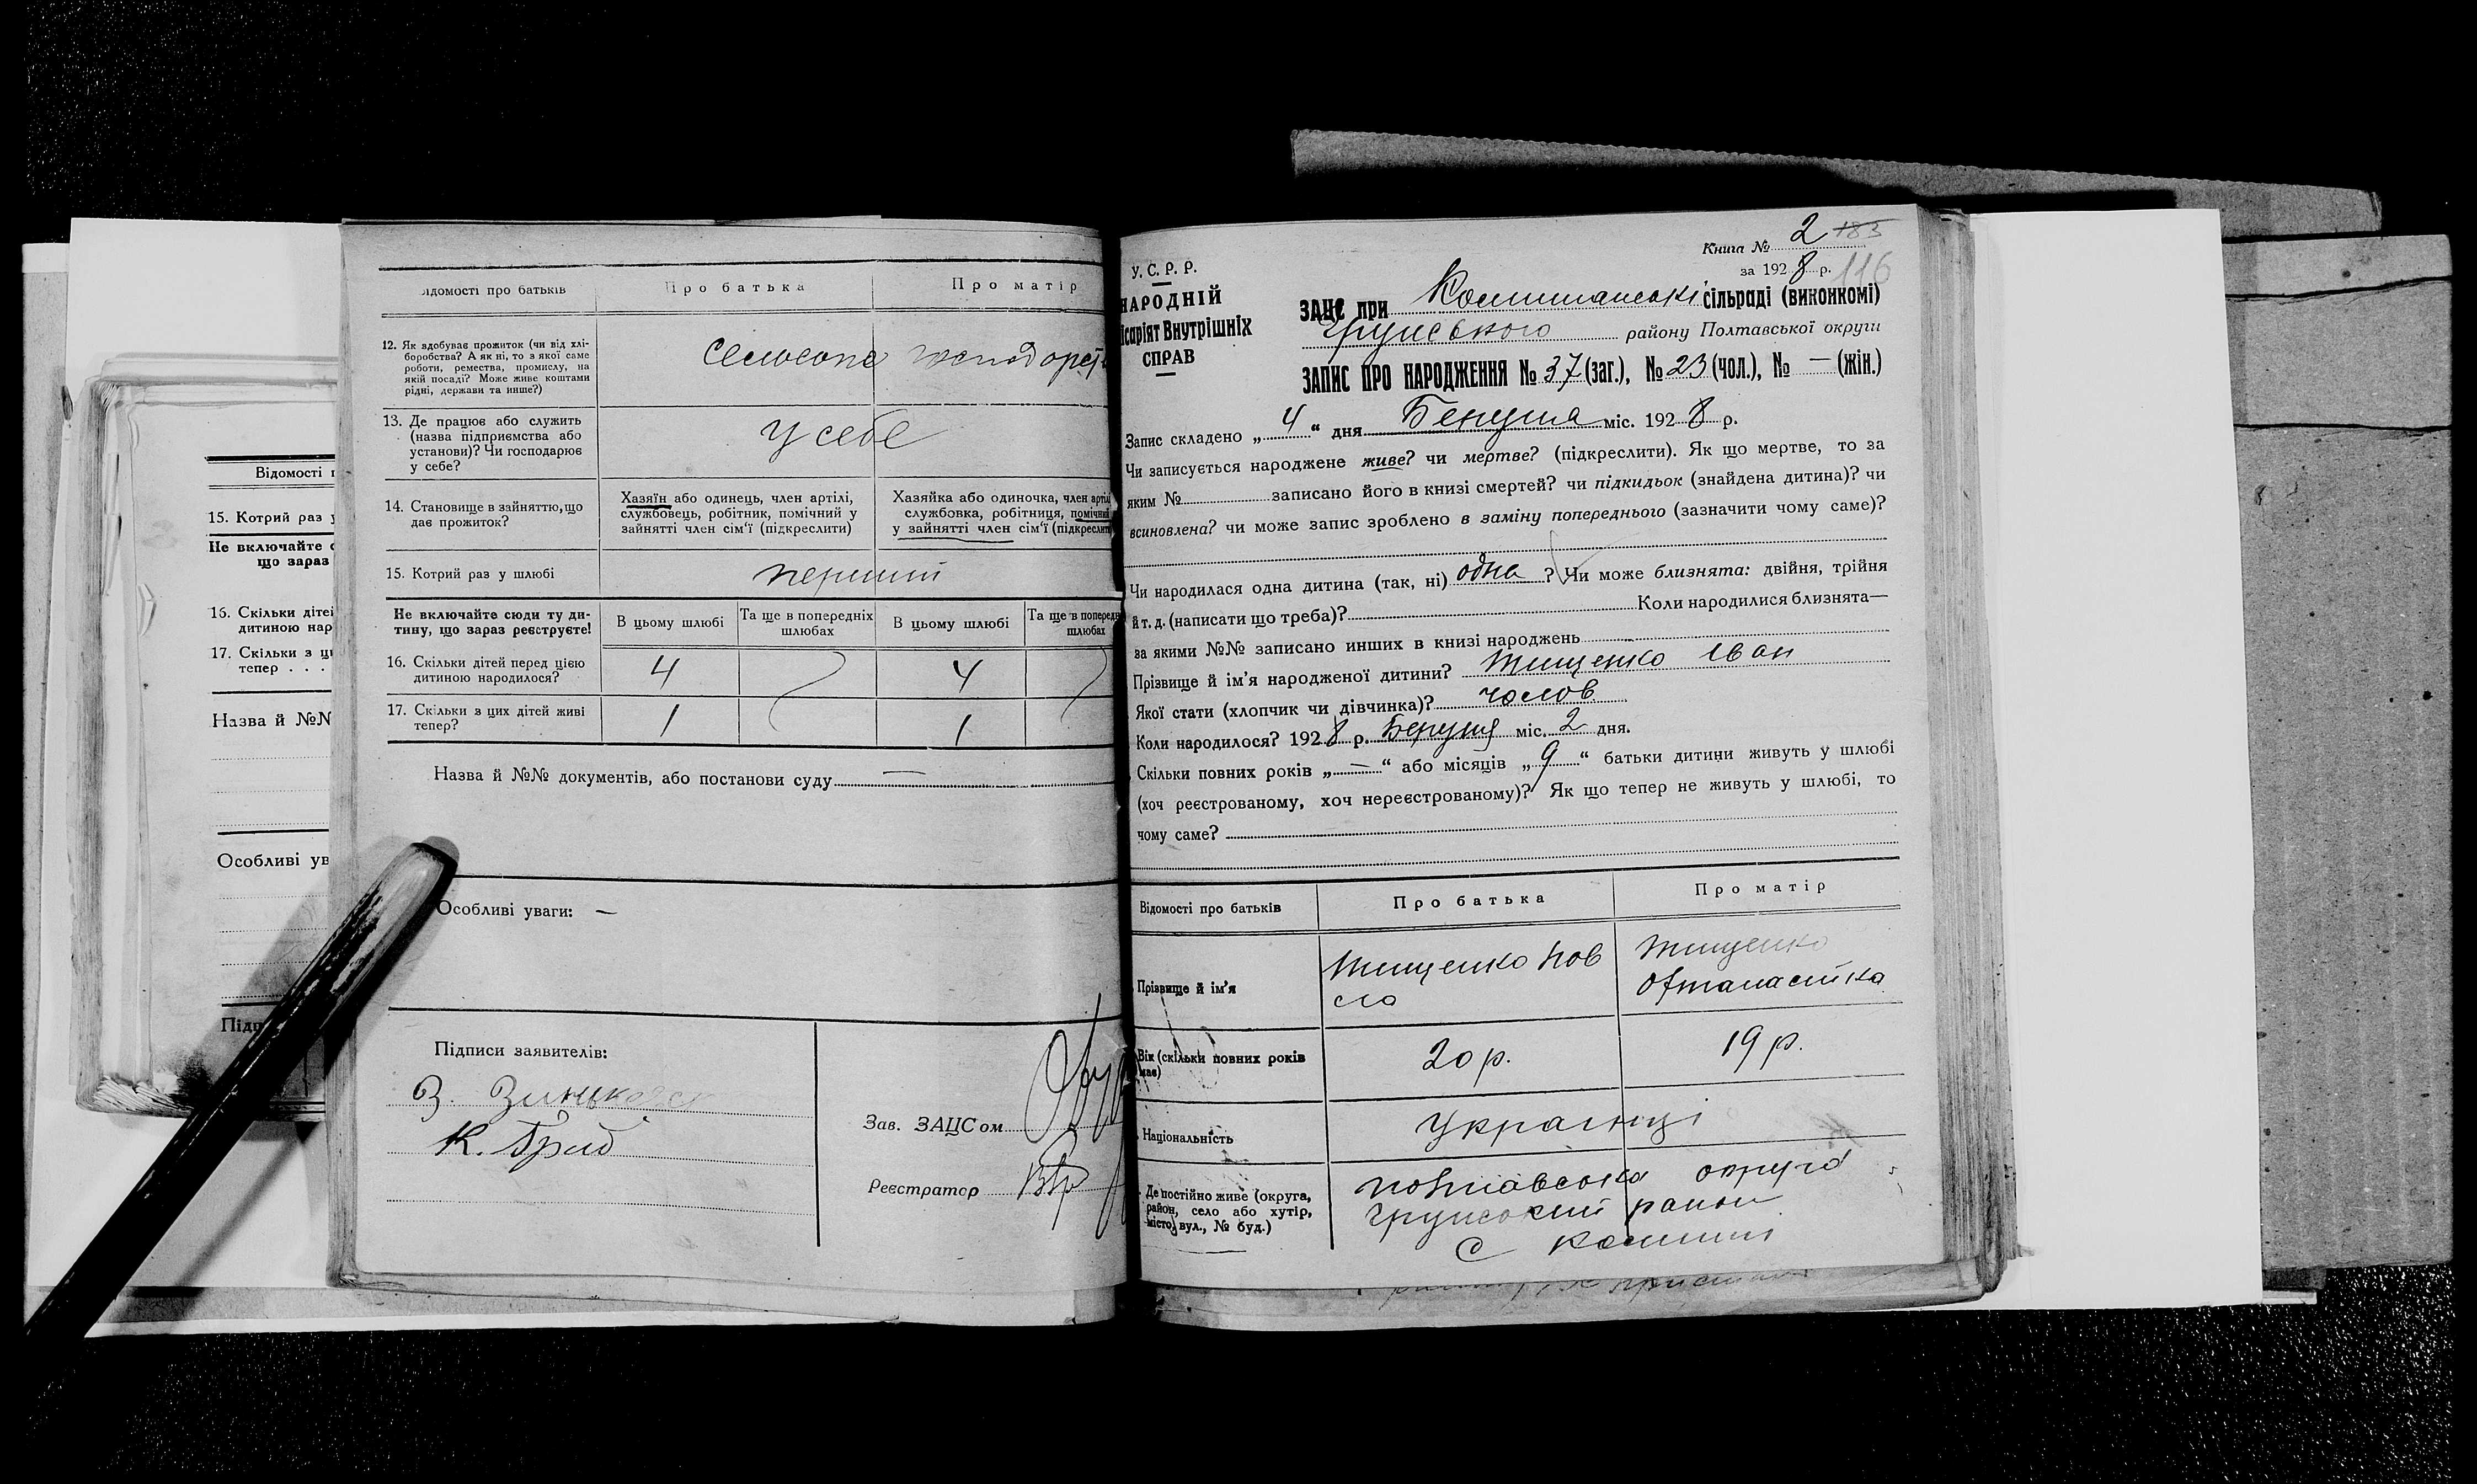 Відомості п
15. Котрий раз у
Не включайте с
що зараз
16. Скільки дітей
дитиною нар
17. Скільки з ци
тепер . . .
Назва й №№
Особливі ув
Підп
ідомості про батьків
Про батька
Про матір
12. Як здобуває прожиток (чи від хлі-
боробства? А як ні, то з якої саме
роботи, ремества, промислу, на
якій посаді? Може живе коштами
рідні, держави та инше?)
сельське господарст
13. Де працює або служить
(назва підприємства або
установи)? Чи господарює
у себе?
у себе
14. Становище в зайняттю, що
дає прожиток?
Хазяїн або одинець, член артілі,
службовець, робітник, помічний у
зайнятті член сім'ї (підкреслити)
Хазяйка або одиночка, член артілі
службовка, робітниця, помічний
у зайнятті член сім'ї (підкреслити
15. Котрий раз у шлюбі
перший
Не включайте сюди ту ди-
тину, що зараз реєструєте!
В цьому шлюбі
Та ще в попередніх
шлюбах
В цьому шлюбі
Та ще в попередн
шлюбах
16. Скільки дітей перед цією
дитиною народилося?
4
4
17. Скільки з цих дітей живі
тепер?
1
1
Назва й №№ документів, або постанови суду —
Особливі уваги: —
Підписи заявителів:
З. Зинькова
К. Гриб
Зав. ЗАЦСом
Реєстратор
Книга № 2 183
за 1928 р. 116
У. С. Р. Р.
НАРОДНІЙ
ісаріят Внутрішніх
СПРАВ
ЗАЦС при сільраді (виконкомі)
Грунського району Полтавської округи
ЗАПИС ПРО НАРОДЖЕННЯ № 37 (заг.), № 23 (чол.), № — (жін.)
Запис складено „ 4 “ дня міс. 1928 р.
Чи записується народжене живе? чи мертве? (підкреслити). Як що мертве, то за
яким № записано його в книзі смертей? чи підкидьок (знайдена дитина)? чи
всиновлена? чи може запис зроблено в заміну попереднього (зазначити чому саме)?
Чи народилася одна дитина (так, ні) одна ? Чи може близнята: двійня, трійня
й т. д. (написати що треба)? Коли народилися близнята—
за якими №№ записано инших в книзі народжень —
Прізвище й ім'я народженої дитини? Тищенко Іван
Якої стати (хлопчик чи дівчинка)? чолов
Коли народилося? 1928 р. міс. 2 дня.
Скільки повних років „ — “ або місяців „ 9 “ батьки дитини живуть у шлюбі
(хоч реєстрованому, хоч нереєстрованому)? Як що тепер не живуть у шлюбі, то
чому саме?
Відомості про батьків
Про батька
Про матір
Прізвище й ім'я
Тищенко Пав
ло
Тищенко
Вік (скільки повних років
має)
20 р.
19 р.
Національність
Українці
Де постійно живе (округа,
район, село або хутір,
місто, вул., № буд.)
Полтавська округа
Грунський район
с